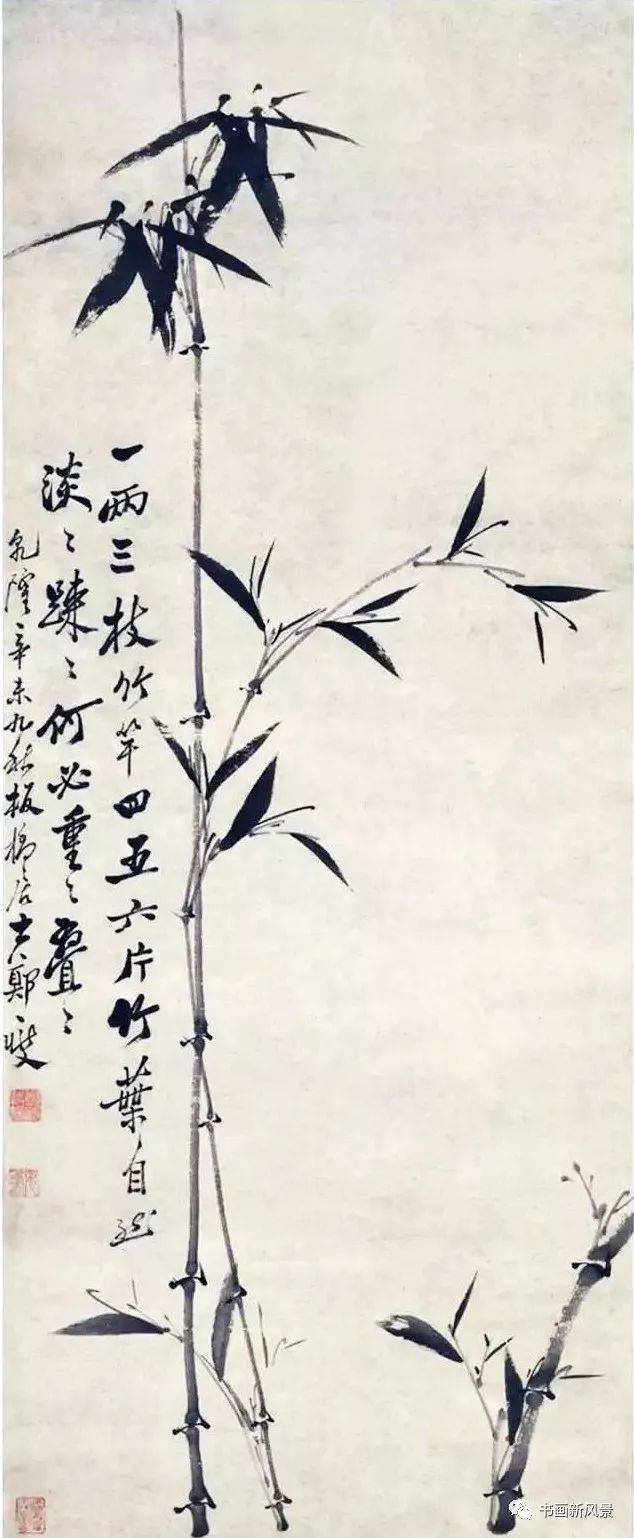 一兩三枝竹竿四五六片竹葉自然
淡〻疎〻何必重〻疊〻
乾隆辛未九秋板橋居士鄭燮
书画新风景